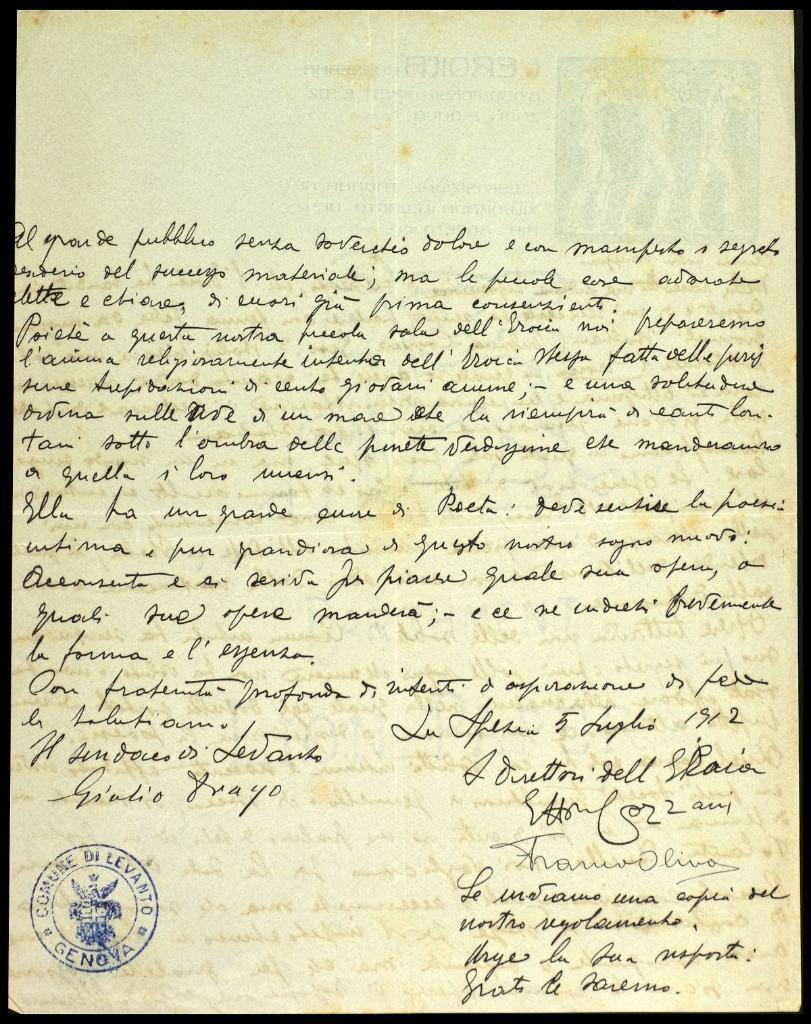 al grande pubblico senza soverchio dolore e con manifesto o segreto
desiderio del successo materiale; ma le piccole cose adorate
elette e chiare, di cuori già prima consenzienti.
Poichè a questa nostra piccola sala dell'Eroica noi prepareremo
l'anima religiosamente intenta dell'Eroica stessa fatta delle puris
sime trepidazioni di cento giovani anime; - e una solitudine
sulle rive d'un mare che la riempirà di canti lon-
tani sotto l'ombra delle pinete verdissime che manderanno
a quella i loro incensi.
Ella ha un grande cuore di Poeta: deve sentire la poesia
intima e pur grandiosa di questo nostro sogno nuovo:
Acconsenta e ci scriva per piacere quale sua opera, o
quali sue opere manderà; - e ce ne indichi brevemente
la forma e l'essenza.
Con fraternità profonda di intenti d'aspirazione di fede
la salutiamo.
La Spezia 5 Luglio 1912
Il sindaco di Levanto
Giulio Drago
I direttori dell'Eroica
Ettore Cozzani
Franco Oliva
Le inviamo una copia del
nostro regolamento.
Urge la sua risposta:
Grati le saremo.
COMUNE DI LEVANTO
GENOVA